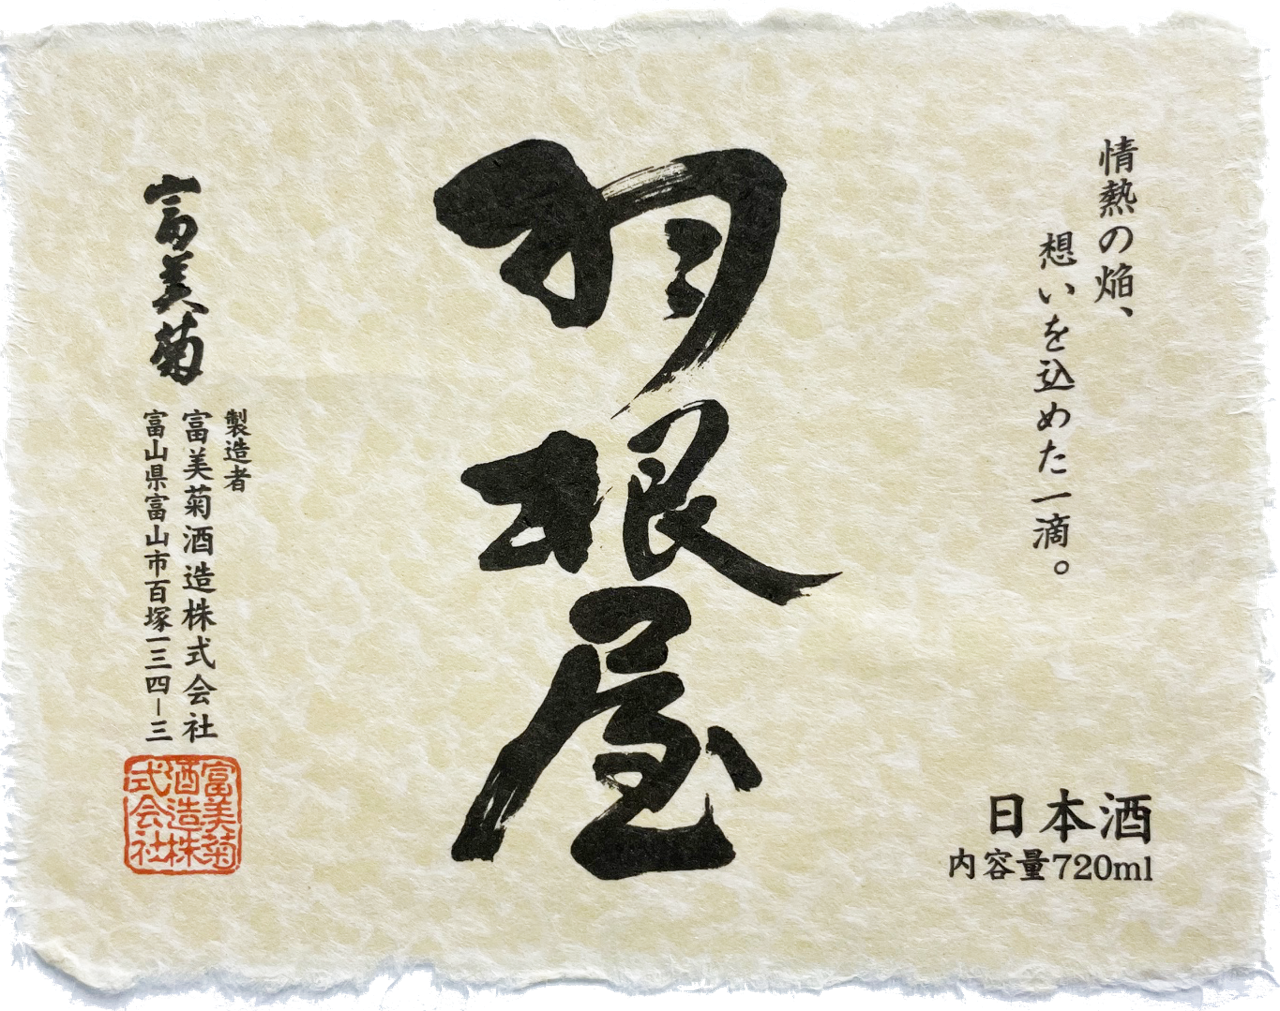 情熱の焔、
想いを込めた一滴。
日本酒
内容量720ml
羽根屋
富美菊
製造者
富美菊酒造株式会社
富山県富山市百塚一三四－三
富美菊
酒造株
式会社